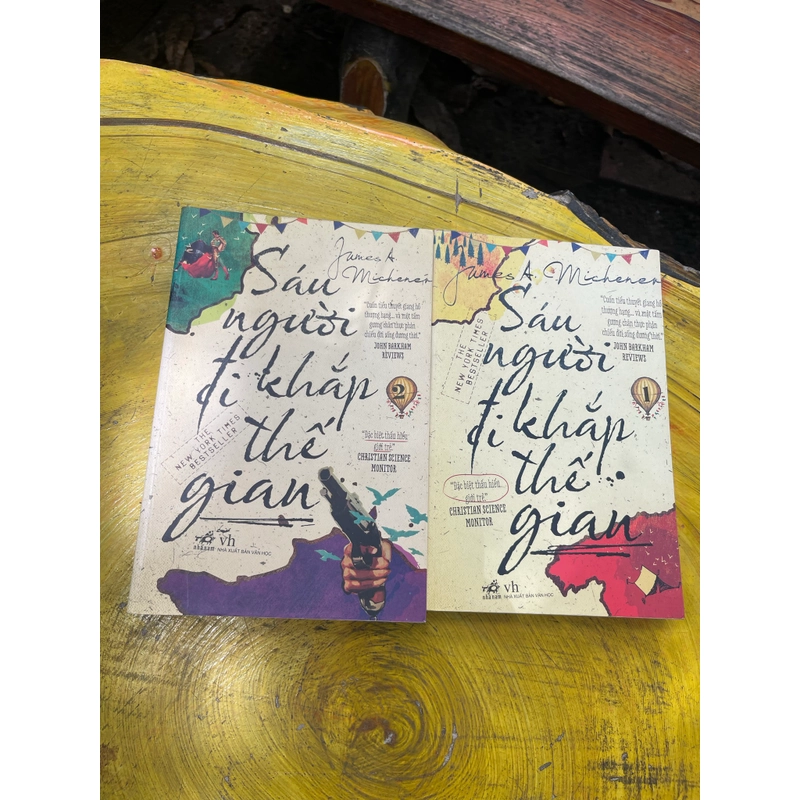 James A.
Michener
Sáu
người
đi khắp
thế
gian
"Cuốn tiểu thuyết giang hồ
thượng hạng... và một tấm
gương chân thực phản
chiếu đời sống đương thời."
JOHN BARKHAM
REVIEWS
2
THE
NEW YORK TIMES
BESTSELLER
"Đặc biệt thấu hiểu
giới trẻ."
CHRISTIAN SCIENCE
MONITOR
nhã nam
vh
NHÀ XUẤT BẢN VĂN HỌC
James A. Michener
Sáu
người
đi khắp
thế
gian
"Cuốn tiểu thuyết giang hồ
thượng hạng... và một tấm
gương chân thực phản
chiếu đời sống đương thời."
JOHN BARKHAM
REVIEWS
THE
NEW YORK TIMES
BESTSELLER
1
"Đặc biệt thấu hiểu
giới trẻ."
CHRISTIAN SCIENCE
MONITOR
nhã nam
vh
NHÀ XUẤT BẢN VĂN HỌC